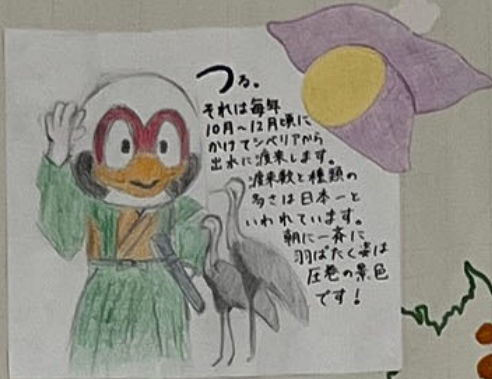 つる。
それは毎年
10月～12月頃に
かけてシベリアから
出水に渡来します。
渡来数と種類の
多さは日本一と
いわれています。
朝に一斉に
羽ばたく姿は
圧巻の景色
です！